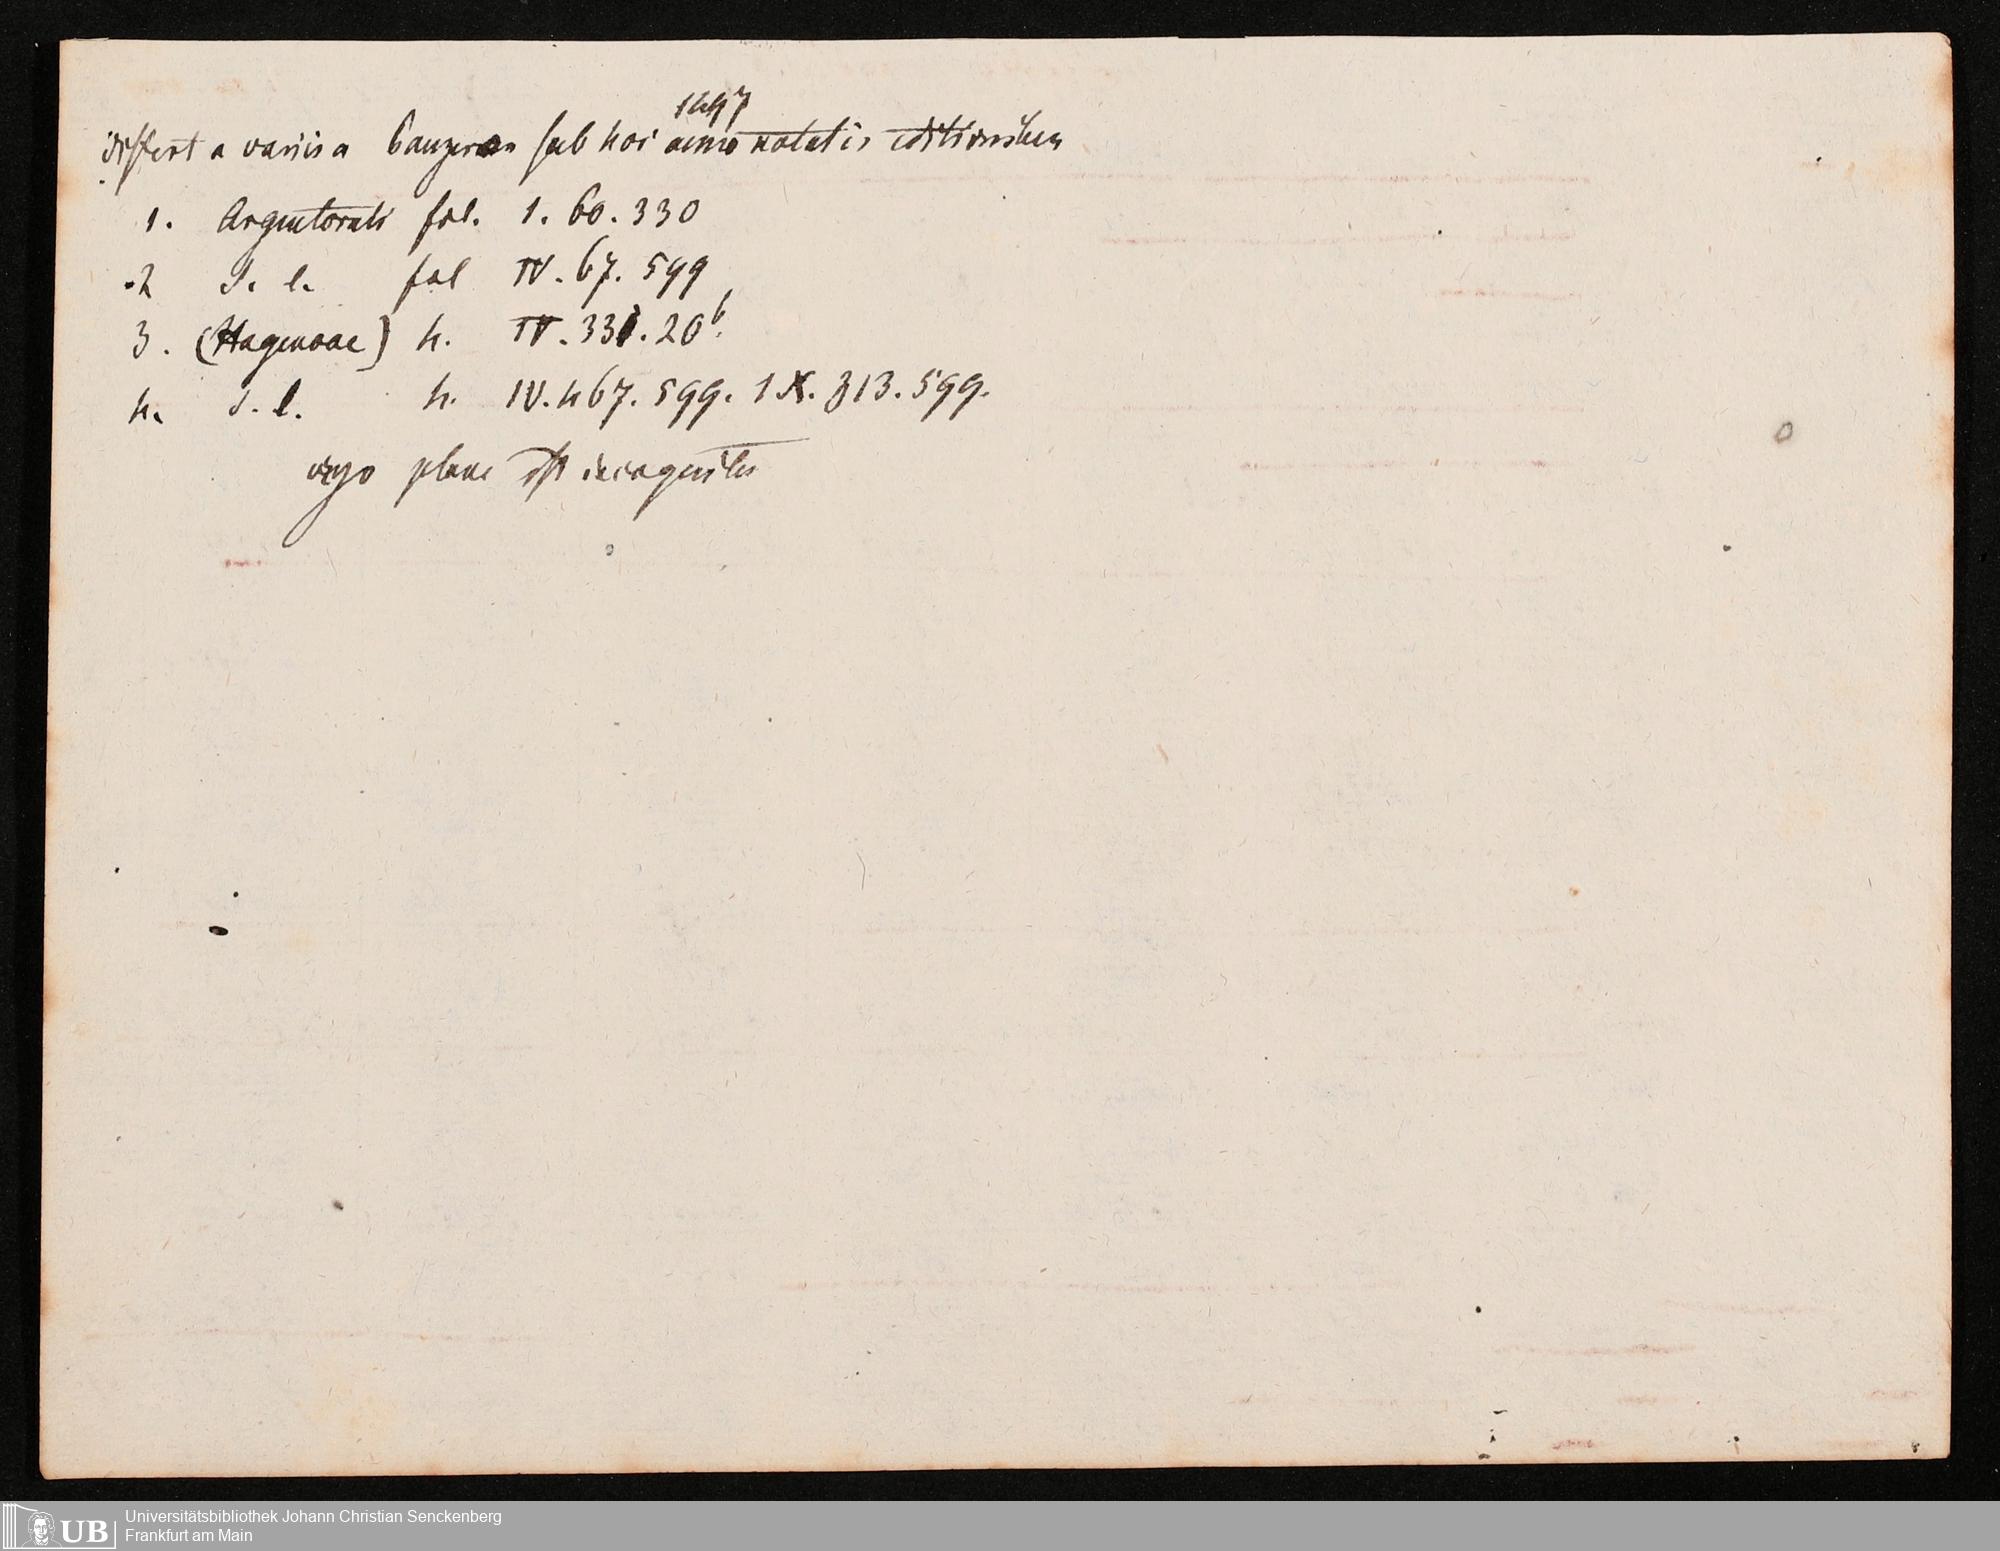 1497
differt a variis a Panzero sub hoc anno notatis editionibus
1. Argentorati fol. 1. 60. 330
2 S. l. fol IV. 67. 599
3. (Hagenoae) 4. IV. 331. 20b.
4. s. l. 4. IV. 467. 599. IX. 313. 599.
ergo plane est incognitus
UB Universitätsbibliothek Johann Christian Senckenberg
Frankfurt am Main